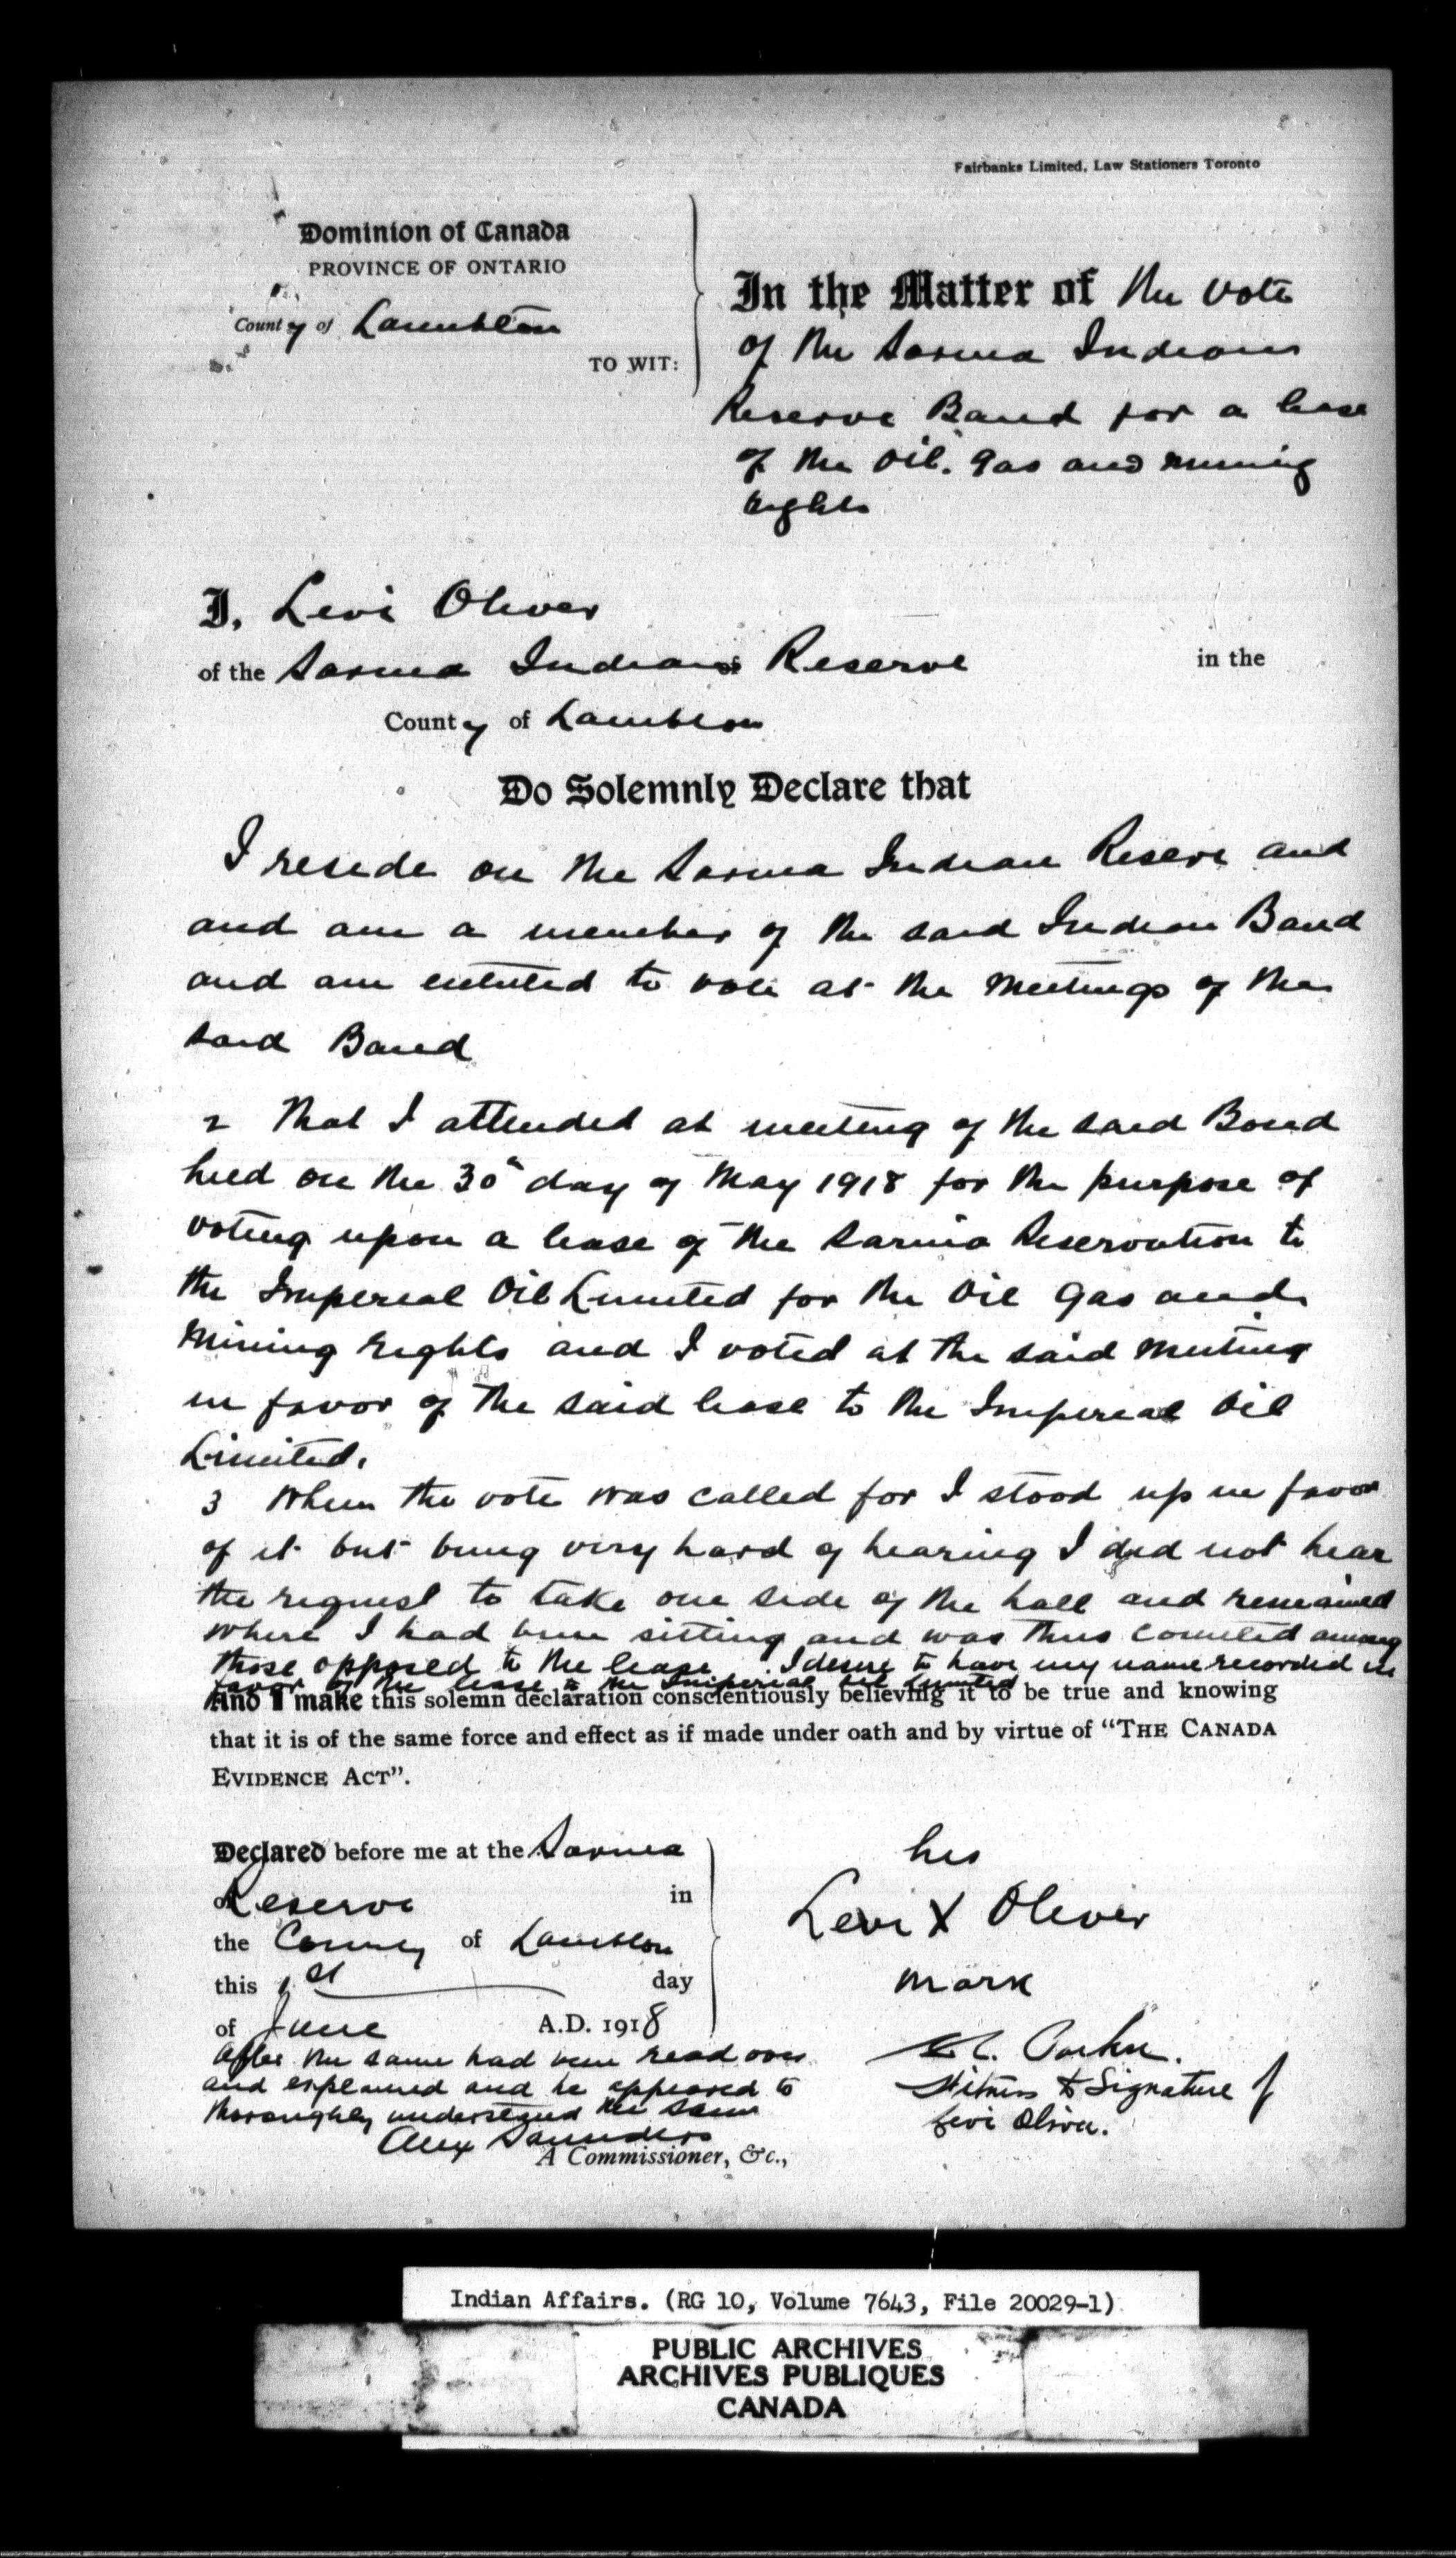 Fairbanks Limited, Law Stationers Toronto
Dominion of Canada
PROVINCE OF ONTARIO
County of Lambton
TO WIT:
In the Matter of the vote
of the Sarnia Indians
Reserve Band for a lease
of the Oil, Gas and mining
rights
I, Levi Oliver
of the Sarnia Indian of Reserve in the
County of Lambton
Do Solemnly Declare that
I reside on the Sarnia Indian Reserve and
and am a member of the said Indian Band
and am entitled to vote at the meetings of the
said Band
2 That I attended at meeting of the said Band
held on the 30th day of May 1918 for the purpose of
voting upon a lease of the Sarnia Reservation to
the Imperial Oil Limited for the Oil Gas and
Mining rights and I voted at the said meeting
in favor of the said lease to the Imperial Oil
Limited.
3 When the vote was called for I stood up in favor
of it but being very hard of hearing I did not hear
the request to take one side of the hall and remained
where I had been sitting and was thus counted among
those opposed to the lease. I desire to have my name recorded in
favor of the lease to the Imperial Oil Limited
And I make this solemn declaration conscientiously believing it to be true and knowing
that it is of the same force and effect as if made under oath and by virtue of "THE CANADA
EVIDENCE ACT".
Declared before me at the Sarnia
of Reserve in
the County of Lambton
this 1st day
of June A.D. 1918
After the same had been read over
and explained and he appeared to
thoroughly understand the same
Alex Saunders
A Commissioner, &c.,
his
Levi X Oliver
mark
Witness to Signature of
Levi Oliver.
Indian Affairs. (RG 10, Volume 7643, File 20029-1)
PUBLIC ARCHIVES
ARCHIVES PUBLIQUES
CANADA